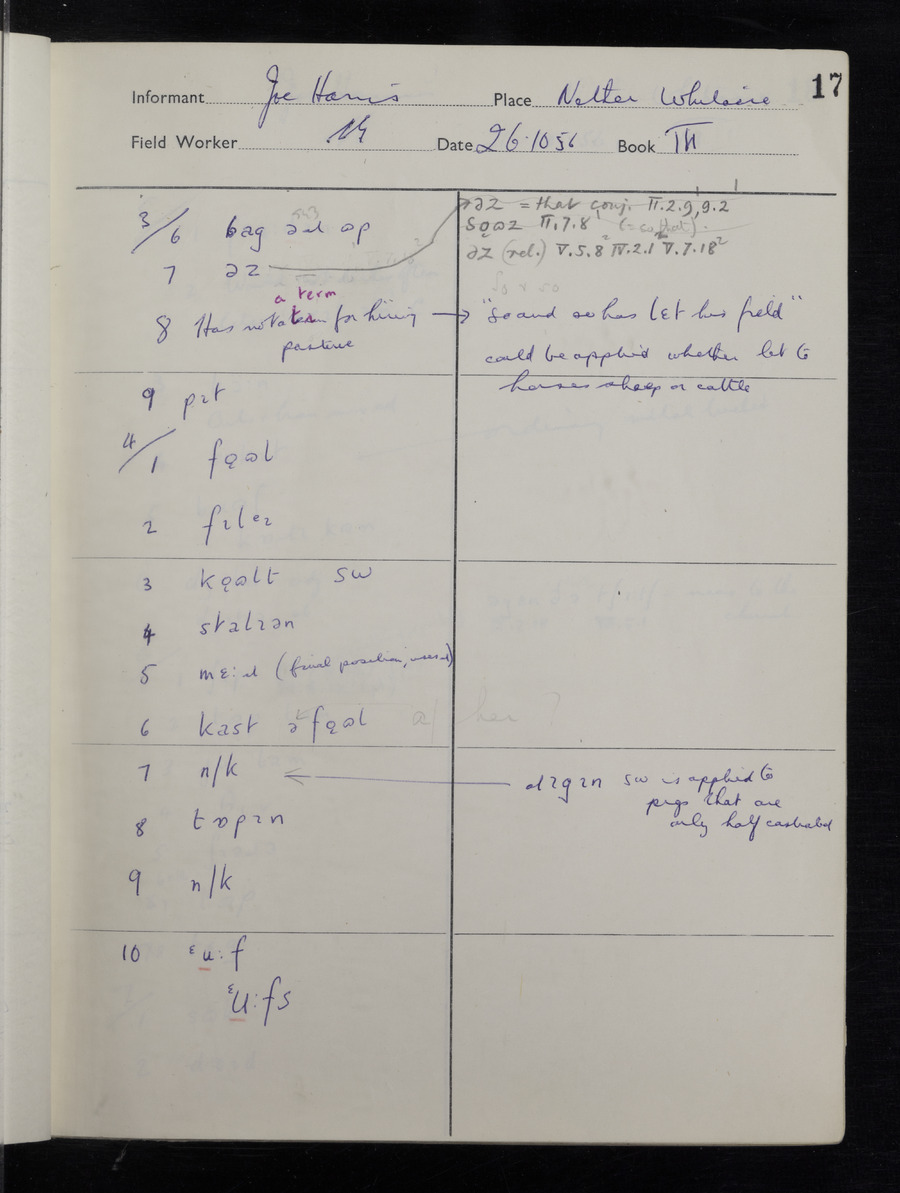 17
Informant Joe Harris Place Nether Whitacre
Field Worker Date 26.10 56 Book III
3/6 bag əɪl ɷp
7 əz
əz = that conj. II.2.9, 9.2
sǫɷz II.7.8 (= so that).
əz (rel.) V.5.8 IV.2.1 V.7.18²
a term
8 Has not a term for hiring
pasture
"So and so has let his field"
could be applied whether let to
horses sheep or cattle
9 pɪt
4/1 fǫɷl
2 fɪleɪ
3 kǫɷlt sw
4 stalɪən
5 mɛ:ɹ (final position,
6 kast ə fǫɷl
7 n/k
dɪgɪn sw is applied to
pigs that are
only half castrated
8 tɒpɪn
9 n/k
10 ᵋu:f
ᵋu:fs